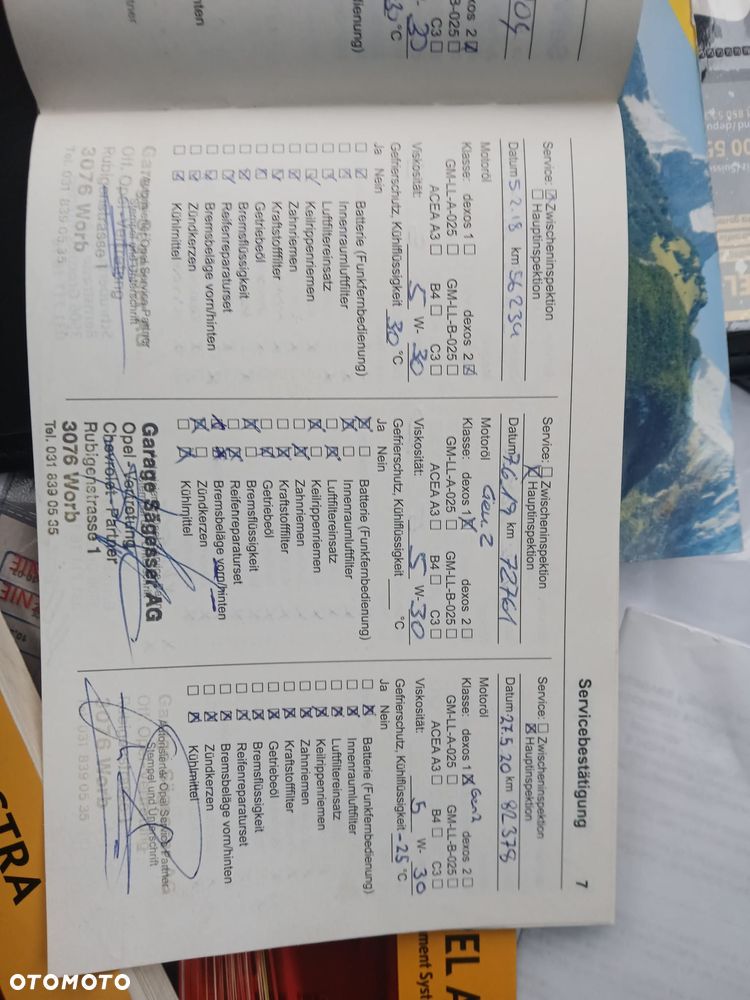 Servicebestätigung
7
Service: ☒ Zwischeninspektion
☐ Hauptinspektion
Datum 5.2.18 km 56234
Motoröl
Klasse: dexos 1 ☐ dexos 2 ☒
GM-LL-A-025 ☐ GM-LL-B-025 ☐
ACEA A3 ☐ B4 ☐ C3 ☐
Viskosität: 5 W- 30
Gefrierschutz, Kühlflüssigkeit 30 °C
Ja Nein
Batterie (Funkfernbedienung)
Innenraumluftfilter
Luftfiltereinsatz
Keilrippenriemen
Zahnriemen
Kraftstofffilter
Getriebeöl
Bremsflüssigkeit
Reifenreparaturset
Bremsbeläge vorn/hinten
Zündkerzen
Kühlmittel
3076 Worb
Tel. 031 839 05 35
Service: ☐ Zwischeninspektion
☒ Hauptinspektion
Datum 7.6.19 km 72761
Motoröl Gen 2
Klasse: dexos 1 ☒ dexos 2 ☐
GM-LL-A-025 ☐ GM-LL-B-025 ☐
ACEA A3 ☐ B4 ☐ C3 ☐
Viskosität: 5 W- 30
Gefrierschutz, Kühlflüssigkeit °C
Ja Nein
Batterie (Funkfernbedienung)
Innenraumluftfilter
Luftfiltereinsatz
Keilrippenriemen
Zahnriemen
Kraftstofffilter
Getriebeöl
Bremsflüssigkeit
Reifenreparaturset
Bremsbeläge vorn/hinten
Zündkerzen
Kühlmittel
Garage Sägesser AG
Opel-Vertretung
Chevrolet-Partner
Rubigenstrasse 1
3076 Worb
Tel. 031 839 05 35
Service: ☐ Zwischeninspektion
☒ Hauptinspektion
Datum 27.5.20 km 82378
Motoröl
Klasse: dexos 1 ☒ Gen 2 dexos 2 ☐
GM-LL-A-025 ☐ GM-LL-B-025 ☐
ACEA A3 ☐ B4 ☐ C3 ☐
Viskosität: 5 W- 30
Gefrierschutz, Kühlflüssigkeit -25 °C
Ja Nein
Batterie (Funkfernbedienung)
Innenraumluftfilter
Luftfiltereinsatz
Keilrippenriemen
Zahnriemen
Kraftstofffilter
Getriebeöl
Bremsflüssigkeit
Reifenreparaturset
Bremsbeläge vorn/hinten
Zündkerzen
Kühlmittel
Autorisierter Opel Service Partner
Stempel und Unterschrift
OTOMOTO